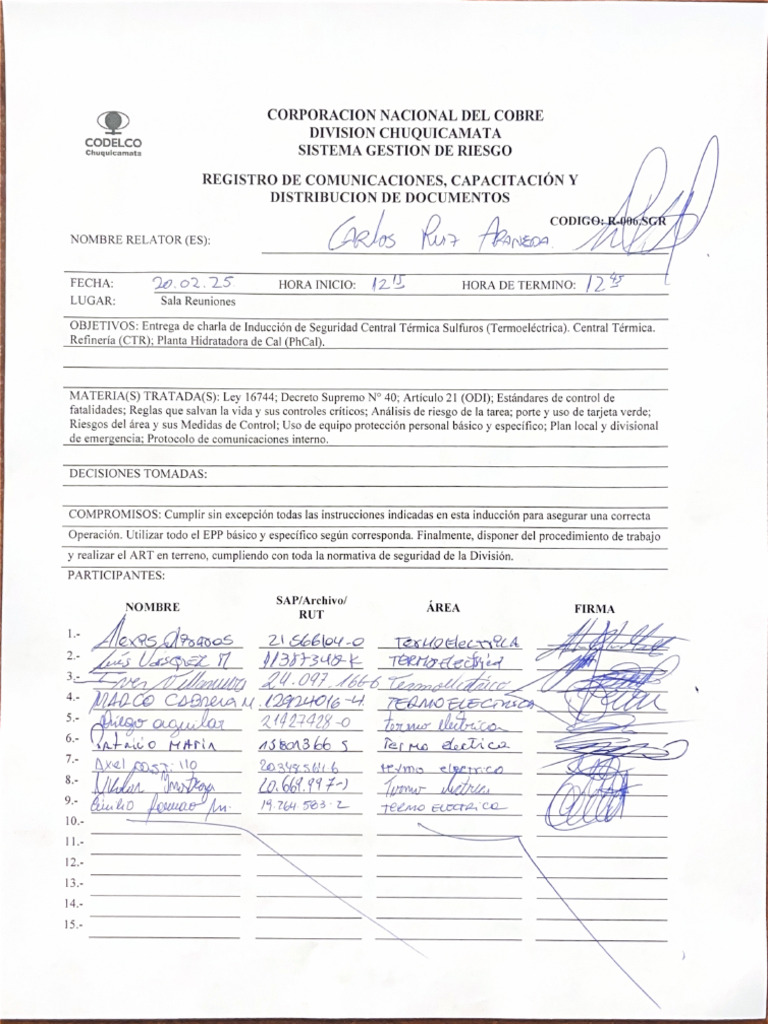 CODELCO
Chuquicamata
CORPORACION NACIONAL DEL COBRE
DIVISION CHUQUICAMATA
SISTEMA GESTION DE RIESGO
REGISTRO DE COMUNICACIONES, CAPACITACIÓN Y
DISTRIBUCION DE DOCUMENTOS
CODIGO: R-006 SGR
NOMBRE RELATOR (ES): Carlos Ruiz Araneda
FECHA: 20.02.25 HORA INICIO: 12 15 HORA DE TERMINO: 12 45
LUGAR: Sala Reuniones
OBJETIVOS: Entrega de charla de Inducción de Seguridad Central Térmica Sulfuros (Termoeléctrica). Central Térmica.
Refinería (CTR); Planta Hidratadora de Cal (PhCal).
MATERIA(S) TRATADA(S): Ley 16744; Decreto Supremo N° 40; Artículo 21 (ODI); Estándares de control de
fatalidades; Reglas que salvan la vida y sus controles críticos; Análisis de riesgo de la tarea; porte y uso de tarjeta verde;
Riesgos del área y sus Medidas de Control; Uso de equipo protección personal básico y específico; Plan local y divisional
de emergencia; Protocolo de comunicaciones interno.
DECISIONES TOMADAS:
COMPROMISOS: Cumplir sin excepción todas las instrucciones indicadas en esta inducción para asegurar una correcta
Operación. Utilizar todo el EPP básico y específico según corresponda. Finalmente, disponer del procedimiento de trabajo
y realizar el ART en terreno, cumpliendo con toda la normativa de seguridad de la División.
PARTICIPANTES:
NOMBRE SAP/Archivo/ RUT ÁREA FIRMA
1.- 21566104-0 Termoelectrica
2.- Luis Vasquez M Termoelectrica
3.- 24.097.166-6 Termoelectrico
4.- MARCO CABRERA M. 12924016-4 TERMOELECTRICA
5.- Diego aguilar 21427428-0 termo eletrica
6.- Patricio Maria termo electica
7.- Axel termo
8.- 20.669.997-
9.- Emilio 19.764.583-2 TERMO ELECTRICA
10.-
11.-
12.-
13.-
14.-
15.-